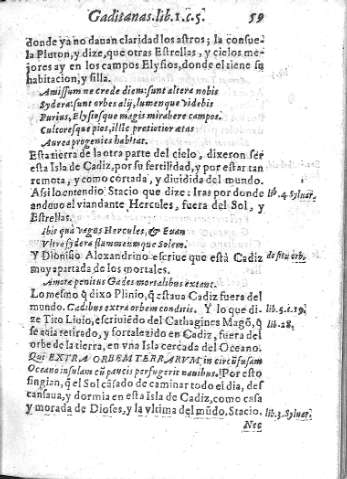 Gaditanas.lib.1.c.5. 59
donde ya no dauan claridad los astros; la consue-
la Pluton, y dize, que otras Estrellas, y cielos me-
jores ay en los campos Elysios, donde el tiene su
habitacion, y silla.
Amissum ne crede diem: sunt altera nobis
Sydera: sunt orbes alij, lumenque videbis
Purius, Elysiosque magis mirabere campos.
Cultoresque pios, illic pretiotior ætas
Aurea progenies habitat.
Esta tierra de la otra parte del cielo, dixeron ser
esta Isla de Cadiz, por su fertilidad, y por estar tan
remota, y como cortada, y diuidida del mundo.
Assi lo entendio Stacio que dize: Iras por donde
anduuo el viandante Hercules, fuera del Sol, y
Estrellas.
lib. 4. Syluar.
Ibis qua vagus Hercules, & Euan
Vltra sydera flammeumque Solem.
Y Dionisio Alexandrino escriue que està Cadiz
muy apartada, de los mortales.
de situ orb.
Amotæ penitus Gades mortalibus extent.
Lo mesmo q̃ dixo Plinio, q̃ estaua Cadiz fuera del
mundo. Gadibus extra orbem conditis. Y lo que di-
ze Tito Liuio, escriuiẽdo del Cathagines Magõ, q̃
se auia retirado, y fortalezido en Cadiz, fuera del
orbe de la tierra, en vna Isla cercada del Oceano.
lib. 5. c. 19.
lib. 28.
Qui EXTRA ORBEM TERRARVM, in circũfusam
Oceano insulam cũ paucis perfugerit nauibus. Por esto
fingian, q̃ el Sol cãsado de caminar todo el dia, des
cansaua, y dormia en esta Isla de Cadiz, como casa
y morada de Dioses, y la vltima del mũdo. Stacio.
lib. 3. Syluar.
Nec